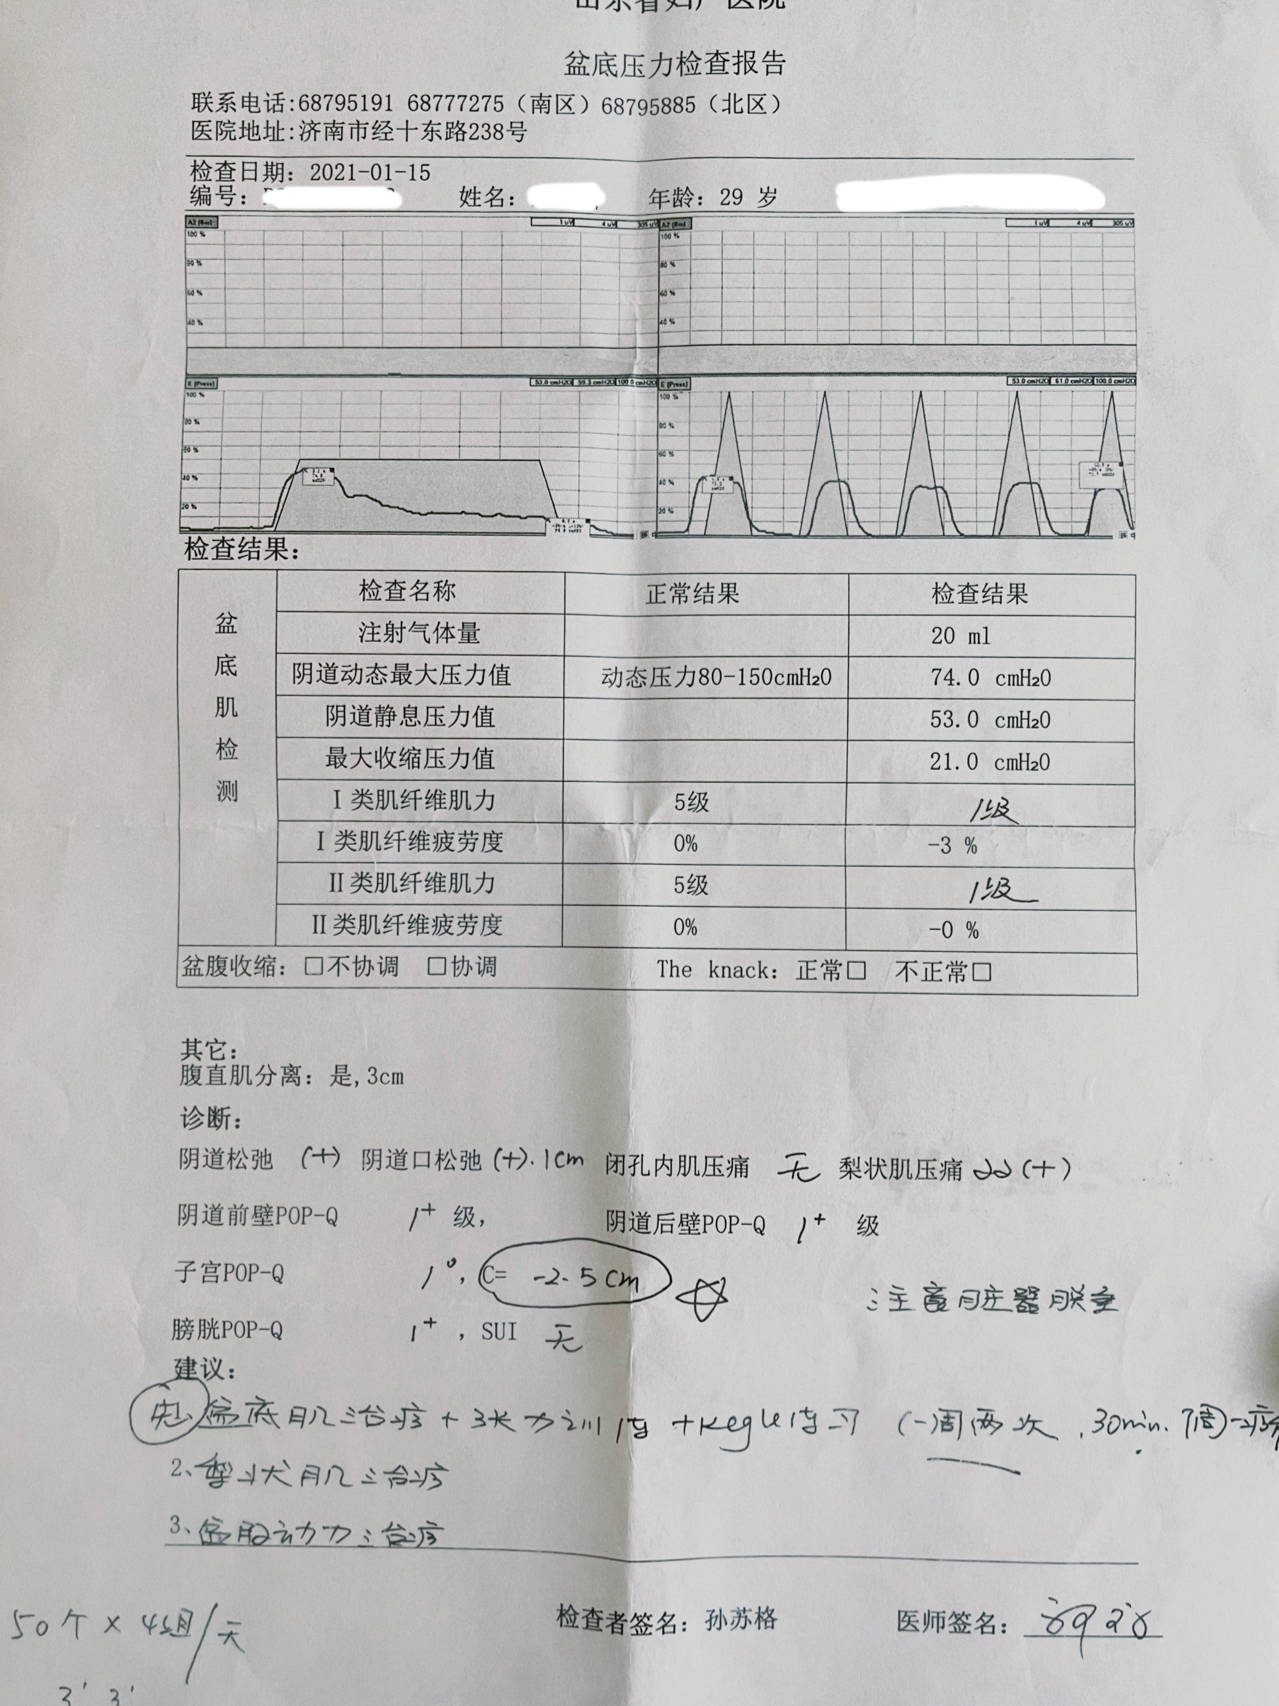 盆底压力检查报告
联系电话:68795191 68777275（南区）68795885（北区）
医院地址:济南市经十东路238号
检查日期: 2021-01-15
编号: 姓名: 年龄: 29 岁
100 %
80 %
60 %
40 %
100 %
80 %
60 %
40 %
E [Press] 53.0 cmH2O 100.0 cmH2O
E [Press] 53.0 cmH2O 61.0 cmH2O 100.0 cmH2O
100 %
80 %
60 %
40 %
20 %
100 %
80 %
60 %
40 %
20 %
检查结果:
盆底肌检测
检查名称 正常结果 检查结果
注射气体量 20 ml
阴道动态最大压力值 动态压力80-150cmH₂O 74.0 cmH₂O
阴道静息压力值 53.0 cmH₂O
最大收缩压力值 21.0 cmH₂O
Ⅰ类肌纤维肌力 5级 1级
Ⅰ类肌纤维疲劳度 0% -3 %
Ⅱ类肌纤维肌力 5级 1级
Ⅱ类肌纤维疲劳度 0% -0 %
盆腹收缩: □不协调 □协调 The knack: 正常□ 不正常□
其它:
腹直肌分离: 是,3cm
诊断:
阴道松弛 (+) 阴道口松弛 (+).1cm 闭孔内肌压痛 无 梨状肌压痛 (+)
阴道前壁POP-Q 1⁺ 级, 阴道后壁POP-Q 1⁺ 级
子宫POP-Q 1°, C= -2.5cm ☆ 注意脏器脱垂
膀胱POP-Q 1⁺ , SUI 无
建议:
盆底肌治疗+张力训练+Kegel练习 (一周两次, 30min.
2、梨状肌治疗
3、盆腹动力治疗
检查者签名: 孙苏格 医师签名:
50个×4组/天
3' 3'